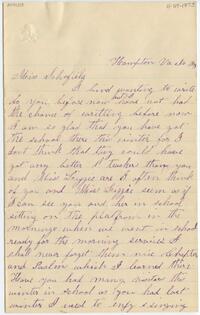 Hampton Va
Miss Schofield
I have been wanting to write
to you before now but have not had
the chance of writting before now
I am so glad that you have got
the school there this winter for I
don't think that they could have
got any better teacher than you
and Miss Lizzie are I often think
of you and Miss Lizzie seem as if
I can see you and her in school
sitting on the platfrom in the
mornings when we went in school
ready for the morning services I
shall never forget them nice Chapters
and Psalms which I learned there
Have you had many scholars this
winter in school as you had last
winter I used to enjoy singing